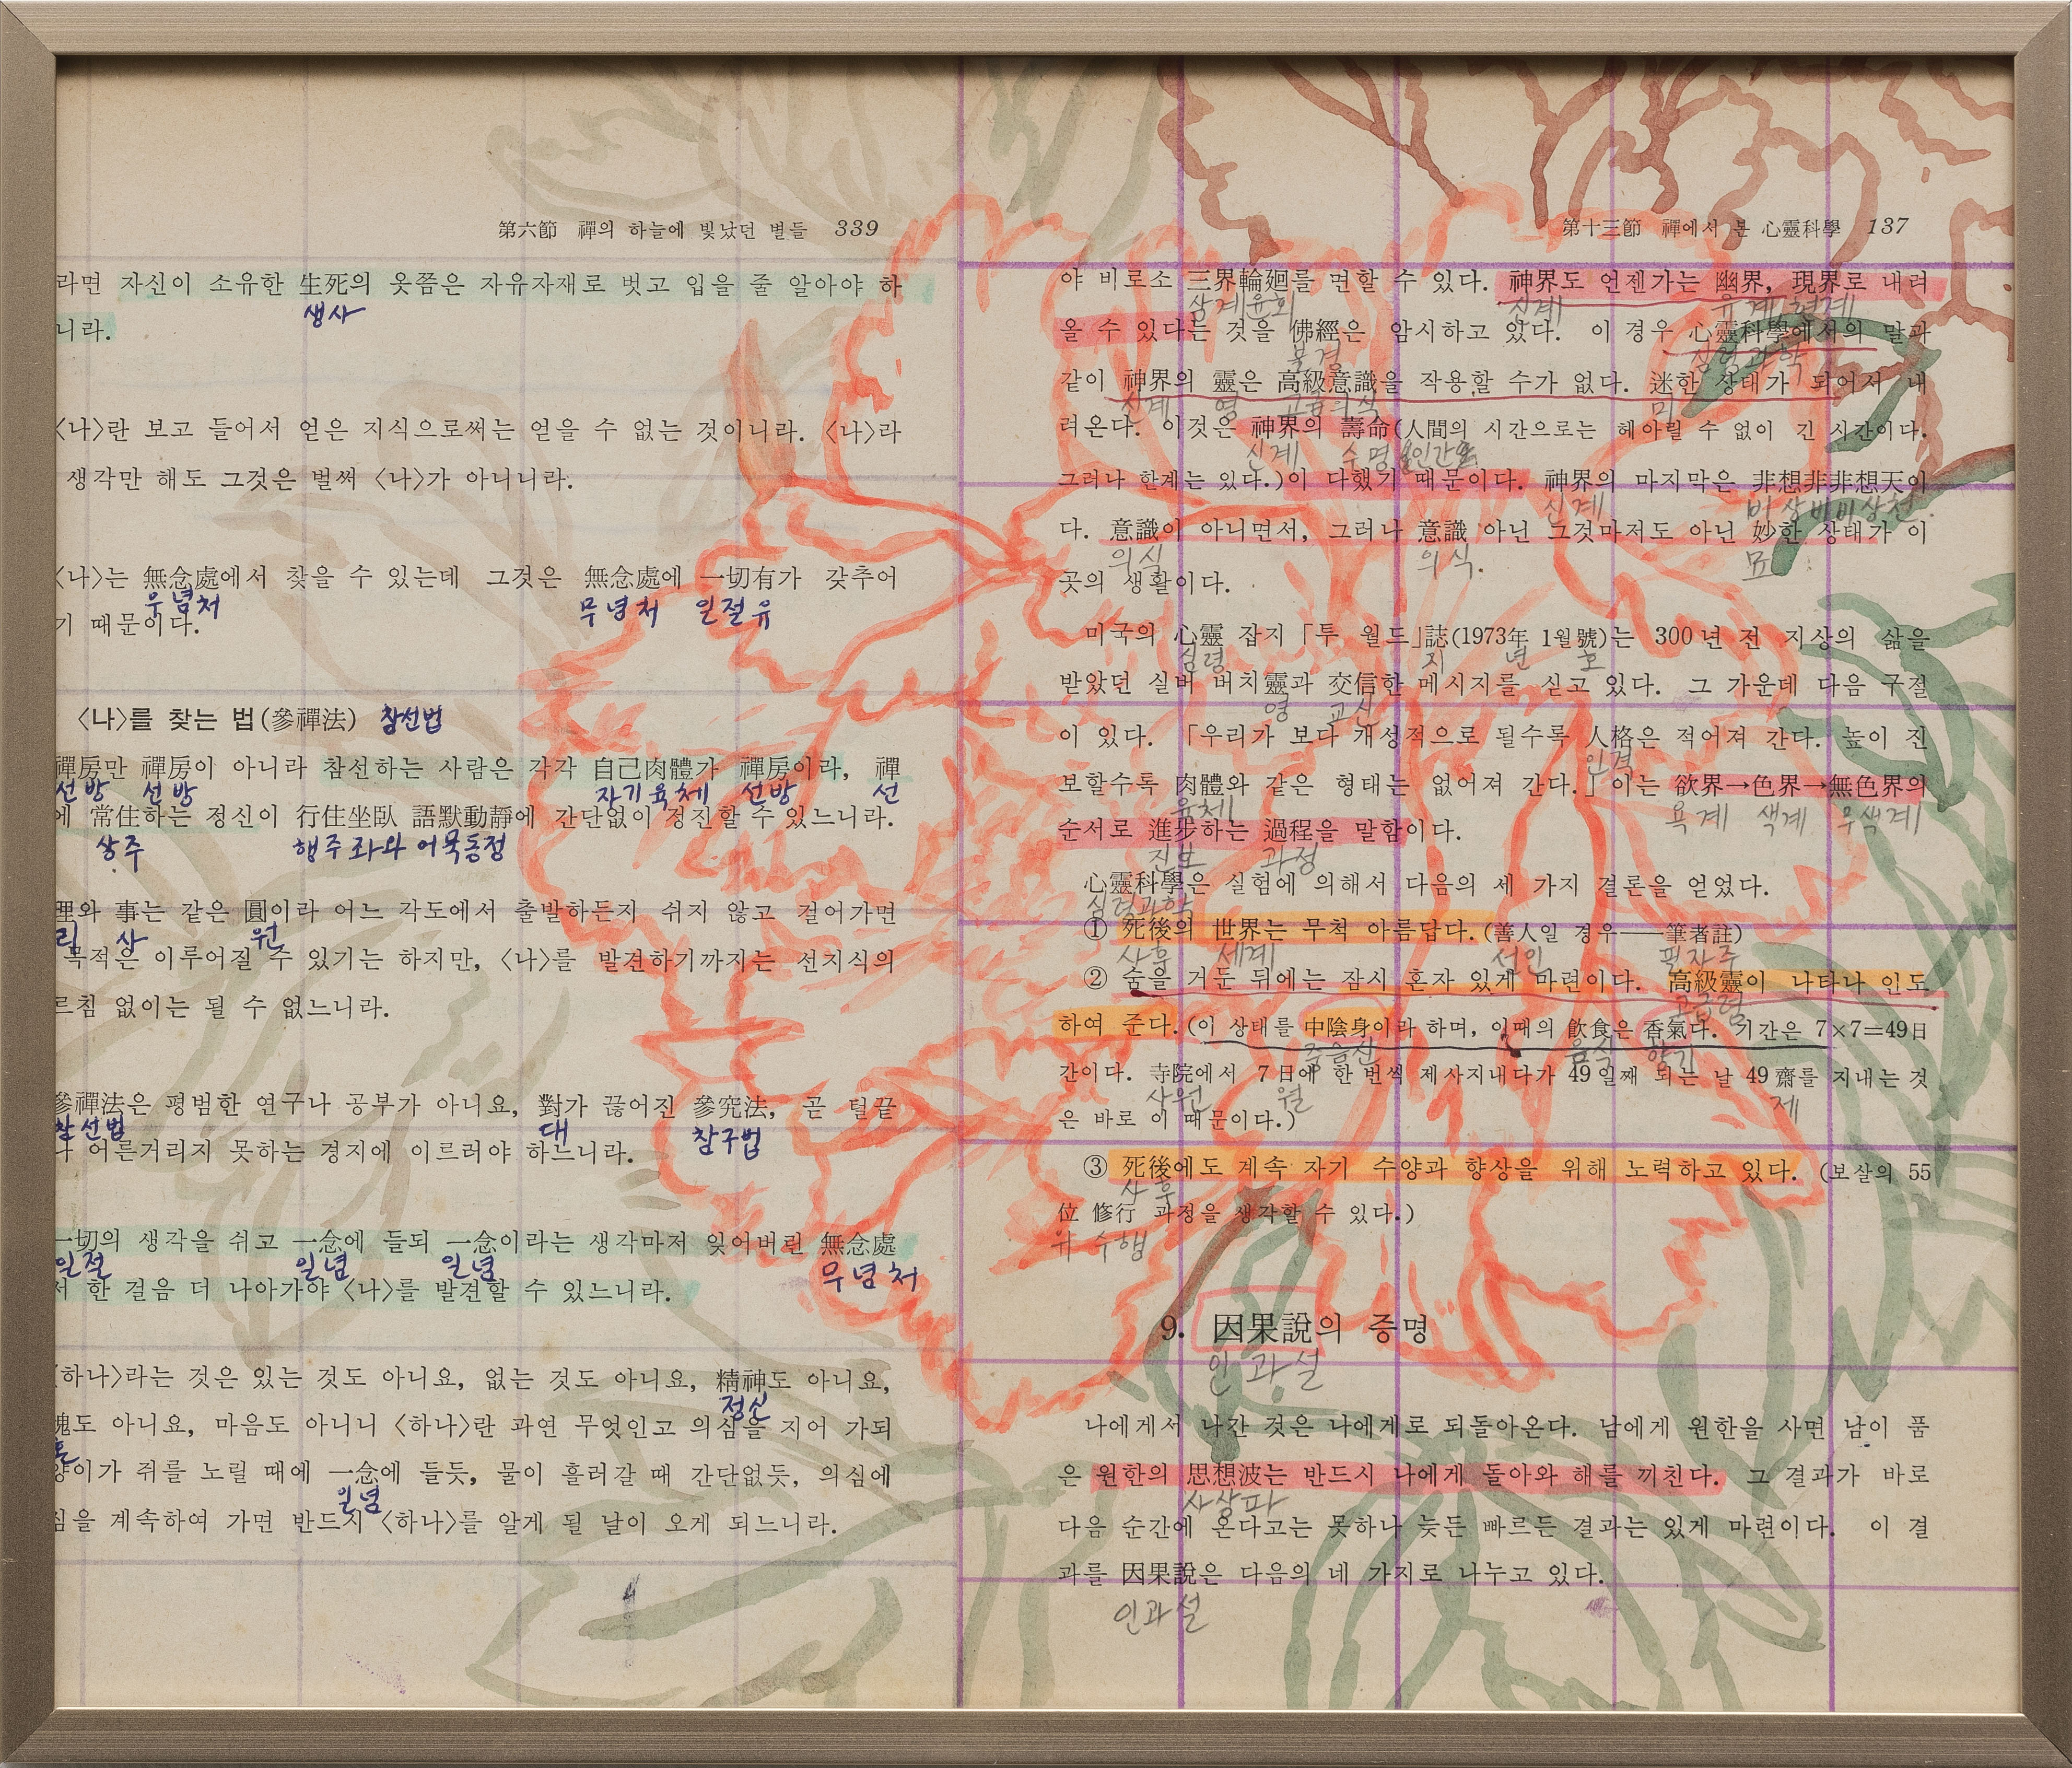 第六節 禪의 하늘에 빛났던 별들 339
라면 자신이 소유한 生死의 옷쯤은 자유자재로 벗고 입을 줄 알아야 하
생사
니라.
〈나〉란 보고 들어서 얻은 지식으로써는 얻을 수 없는 것이니라. 〈나〉라
생각만 해도 그것은 벌써 〈나〉가 아니니라.
〈나〉는 無念處에서 찾을 수 있는데 그것은 無念處에 一切有가 갖추어
무념처 무념처 일절유
기 때문이다.
〈나〉를 찾는 법(參禪法) 참선법
禪房만 禪房이 아니라 참선하는 사람은 각각 自己肉體가 禪房이라, 禪
선방 선방 자기육체 선방 선
에 常住하는 정신이 行住坐臥 語默動靜에 간단없이 정진할 수 있느니라.
상주 행주좌와 어묵동정
理와 事는 같은 圓이라 어느 각도에서 출발하든지 쉬지 않고 걸어가면
리 사 원
목적은 이루어질 수 있기는 하지만, 〈나〉를 발견하기까지는 선지식의
르침 없이는 될 수 없느니라.
參禪法은 평범한 연구나 공부가 아니요, 對가 끊어진 參究法, 곧 털끝
참선법 대 참구법
나 어른거리지 못하는 경지에 이르러야 하느니라.
一切의 생각을 쉬고 一念에 들되 一念이라는 생각마저 잊어버린 無念處
일절 일념 일념 무념처
서 한 걸음 더 나아가야 〈나〉를 발견할 수 있느니라.
〈하나〉라는 것은 있는 것도 아니요, 없는 것도 아니요, 精神도 아니요,
정신
魂도 아니요, 마음도 아니니 〈하나〉란 과연 무엇인고 의심을 지어 가되
혼
양이가 쥐를 노릴 때에 一念에 들듯, 물이 흘러갈 때 간단없듯, 의심에
일념
심을 계속하여 가면 반드시 〈하나〉를 알게 될 날이 오게 되느니라.
第十三節 禪에서 본 心靈科學 137
야 비로소 三界輪廻를 면할 수 있다. 神界도 언젠가는 幽界, 現界로 내려
삼계윤회 신계 유계 현계
올 수 있다는 것을 佛經은 암시하고 있다. 이 경우 心靈科學에서의 말과
불경 심령과학
같이 神界의 靈은 高級意識을 작용할 수가 없다. 迷한 상태가 되어서 내
신계 영 고급의식 미
려온다. 이것은 神界의 壽命(人間의 시간으로는 헤아릴 수 없이 긴 시간이다.
신계 수명 인간
그러나 한계는 있다.)이 다했기 때문이다. 神界의 마지막은 非想非非想天이
신계 비상비비상천.
다. 意識이 아니면서, 그러나 意識 아닌 그것마저도 아닌 妙한 상태가 이
의식 의식. 묘
곳의 생활이다.
미국의 心靈 잡지 「투 월드」誌(1973年 1월號)는 300년 전 지상의 삶을
심령 지 년 호
받았던 실버 버치靈과 交信한 메시지를 싣고 있다. 그 가운데 다음 구절
영 교신
이 있다. 「우리가 보다 개성적으로 될수록 人格은 적어져 간다. 높이 진
인격
보할수록 肉體와 같은 형태는 없어져 간다.」 이는 欲界→色界→無色界의
육체 욕계 색계 무색계
순서로 進步하는 過程을 말함이다.
진보 과정
心靈科學은 실험에 의해서 다음의 세 가지 결론을 얻었다.
심령과학
① 死後의 世界는 무척 아름답다. (善人일 경우——筆者註)
사후 세계 선인 필자주
② 숨을 거둔 뒤에는 잠시 혼자 있게 마련이다. 高級靈이 나타나 인도
고급령
하여 준다. (이 상태를 中陰身이라 하며, 이때의 飮食은 香氣다. 기간은 7×7=49日
중음신 음식 향기
간이다. 寺院에서 7日에 한 번씩 제사지내다가 49일째 되는 날 49齋를 지내는 것
사원 월 제
은 바로 이 때문이다.)
③ 死後에도 계속 자기 수양과 향상을 위해 노력하고 있다. (보살의 55
사후
位 修行 과정을 생각할 수 있다.)
위 수행
9. 因果說의 증명
인과설
나에게서 나간 것은 나에게로 되돌아온다. 남에게 원한을 사면 남이 품
은 원한의 思想波는 반드시 나에게 돌아와 해를 끼친다. 그 결과가 바로
사상파
다음 순간에 온다고는 못하나 늦든 빠르든 결과는 있게 마련이다. 이 결
과를 因果說은 다음의 네 가지로 나누고 있다.
인과설